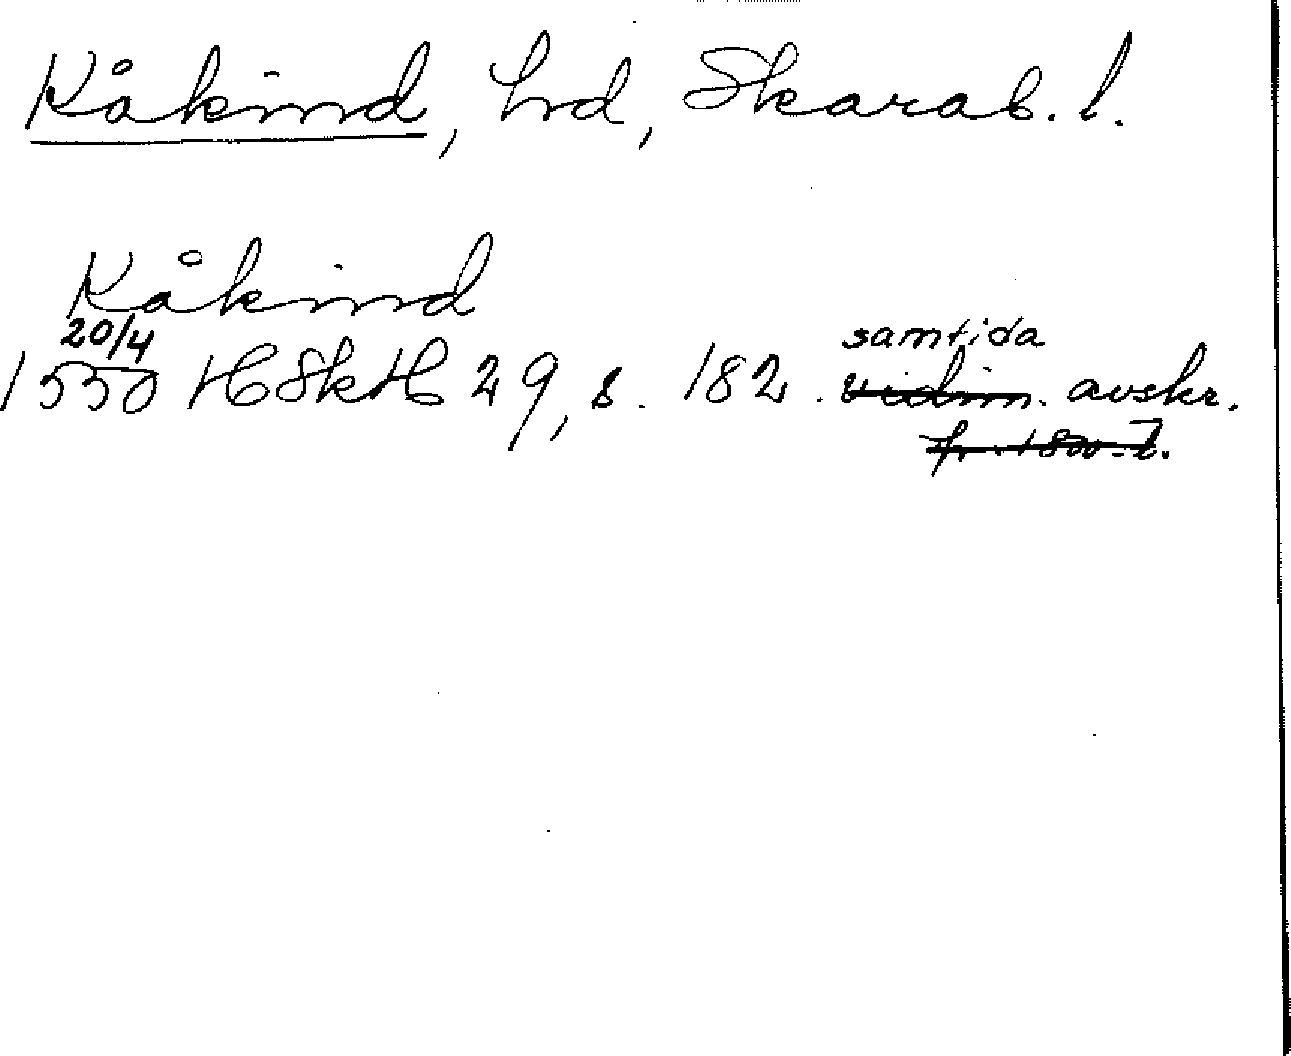 Kåkind, hd, Skarab. l.
Kåkind
20/4
samtida
1550 HSkH 29, s. 182. vidim. avskr.
fr. 1800-t.